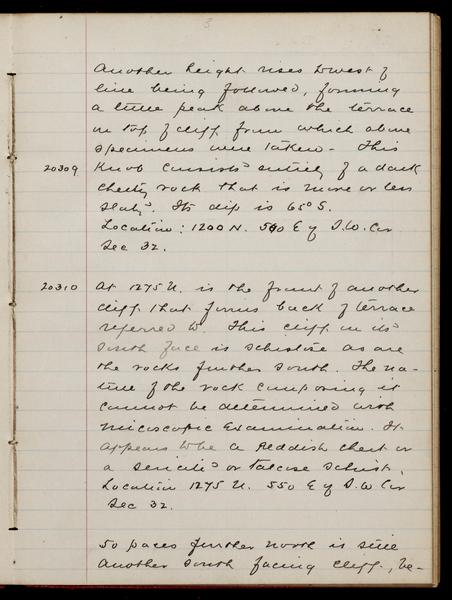 3
Another height rises to west of
line being followed, forming
a little peak above the terrace
on top of cliff from which above
specimens were taken - This
20309 Knob consists entirely of a dark
cherty rock that is more or less
slaty. Its dip is 65° S.
Location: 1200 N. 550 E of S.W. Cor
Sec 32.
20310 At 1275 N. is the front of another
cliff that forms back of terrace
referred to. This cliff in its
south face is schistose as are
the rocks further south. The na-
ture of the rock composing it
cannot be determined with
microscopic examination. It
appears to be a Reddish chert or
a sericitic or talcose schist.
Location 1275 N. 550 E of S.W Cor
Sec 32.
50 paces further north is still
another south facing cliff, be-